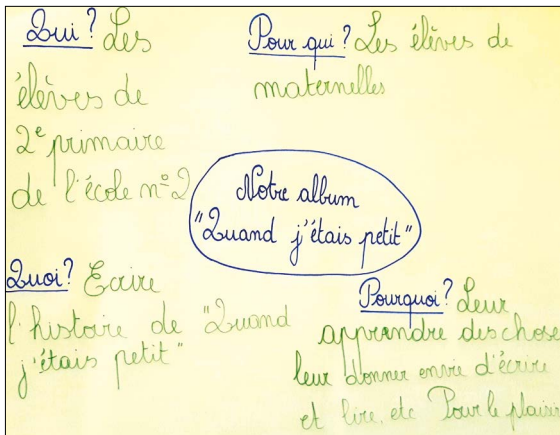 Qui ? Les
élèves de
2e primaire
de l'école n°2
Pour qui ? Les élèves de
maternelles
Notre album
"Quand j'étais petit"
Quoi ? Ecrire
l'histoire de "Quand
j'étais petit"
Pourquoi ? Leur
apprendre des chose
leur donner envie d'écrire
et lire, etc Pour le plaisir